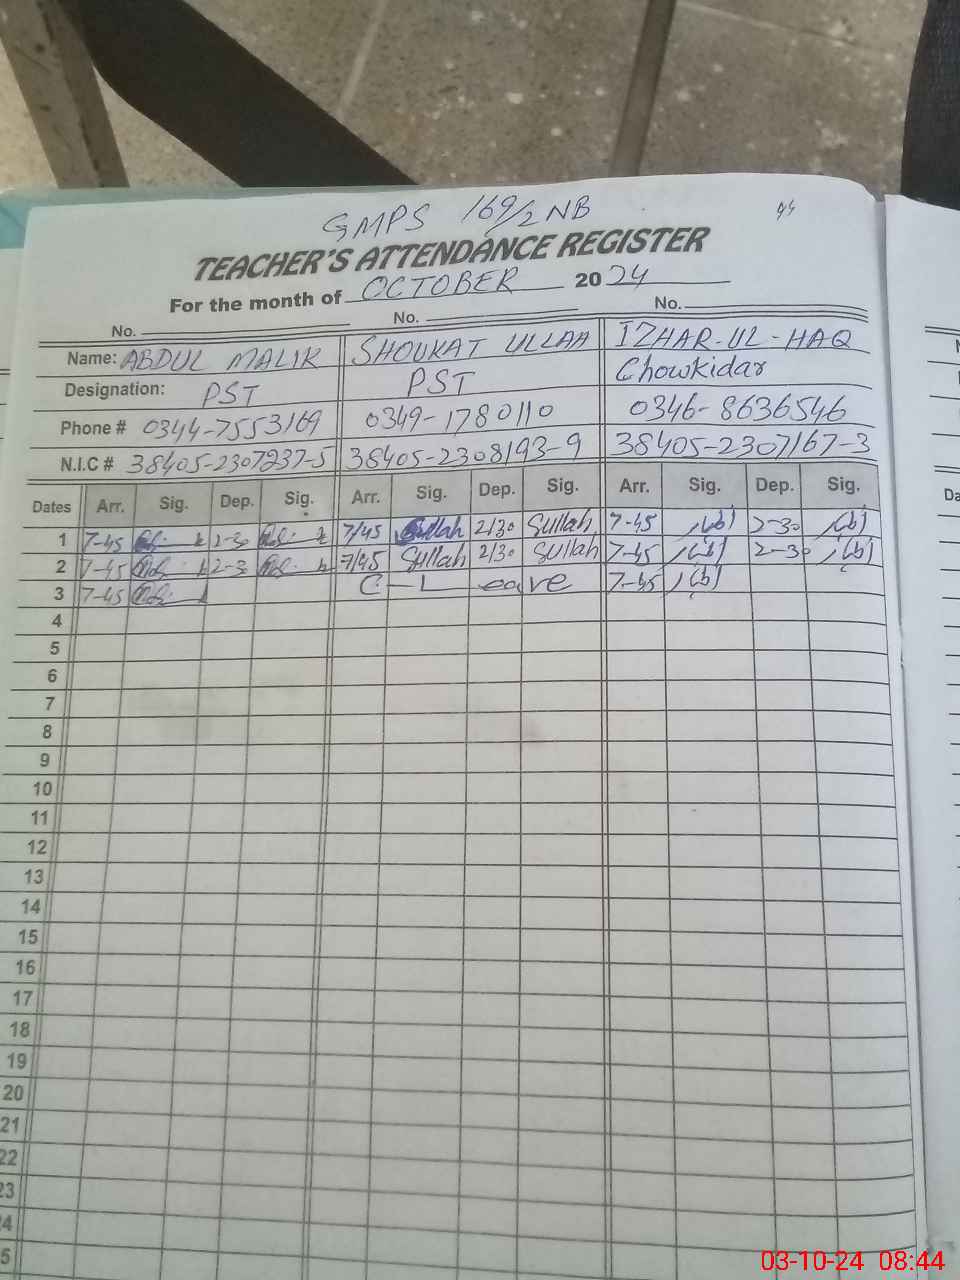 GMPS 169/2 NB
TEACHER'S ATTENDANCE REGISTER
For the month of OCTOBER 2024
No. No. No.
Name: ABDUL MALIK SHOUKAT ULLAH IZHAR-UL-HAQ
Designation: PST PST Chowkidar
Phone # 0344-7553169 0349-1780110 0346-8636546
N.I.C # 38405-2307237-5 38405-2308193-9 38405-2307167-3
Dates Arr. Sig. Dep. Sig. Arr. Sig. Dep. Sig. Arr. Sig. Dep. Sig.
1 7-45 2-30 7/45 Sullah 2/30 Sullah 7-45 2-30
2 7-45 2-30 7/45 Sullah 2/30 Sullah 7-45 2-30
3 7-45 C-Leave 7-45
4
5
6
7
8
9
10
11
12
13
14
15
16
17
18
19
20
21
22
23
4
5
Da
03-10-24 08:44